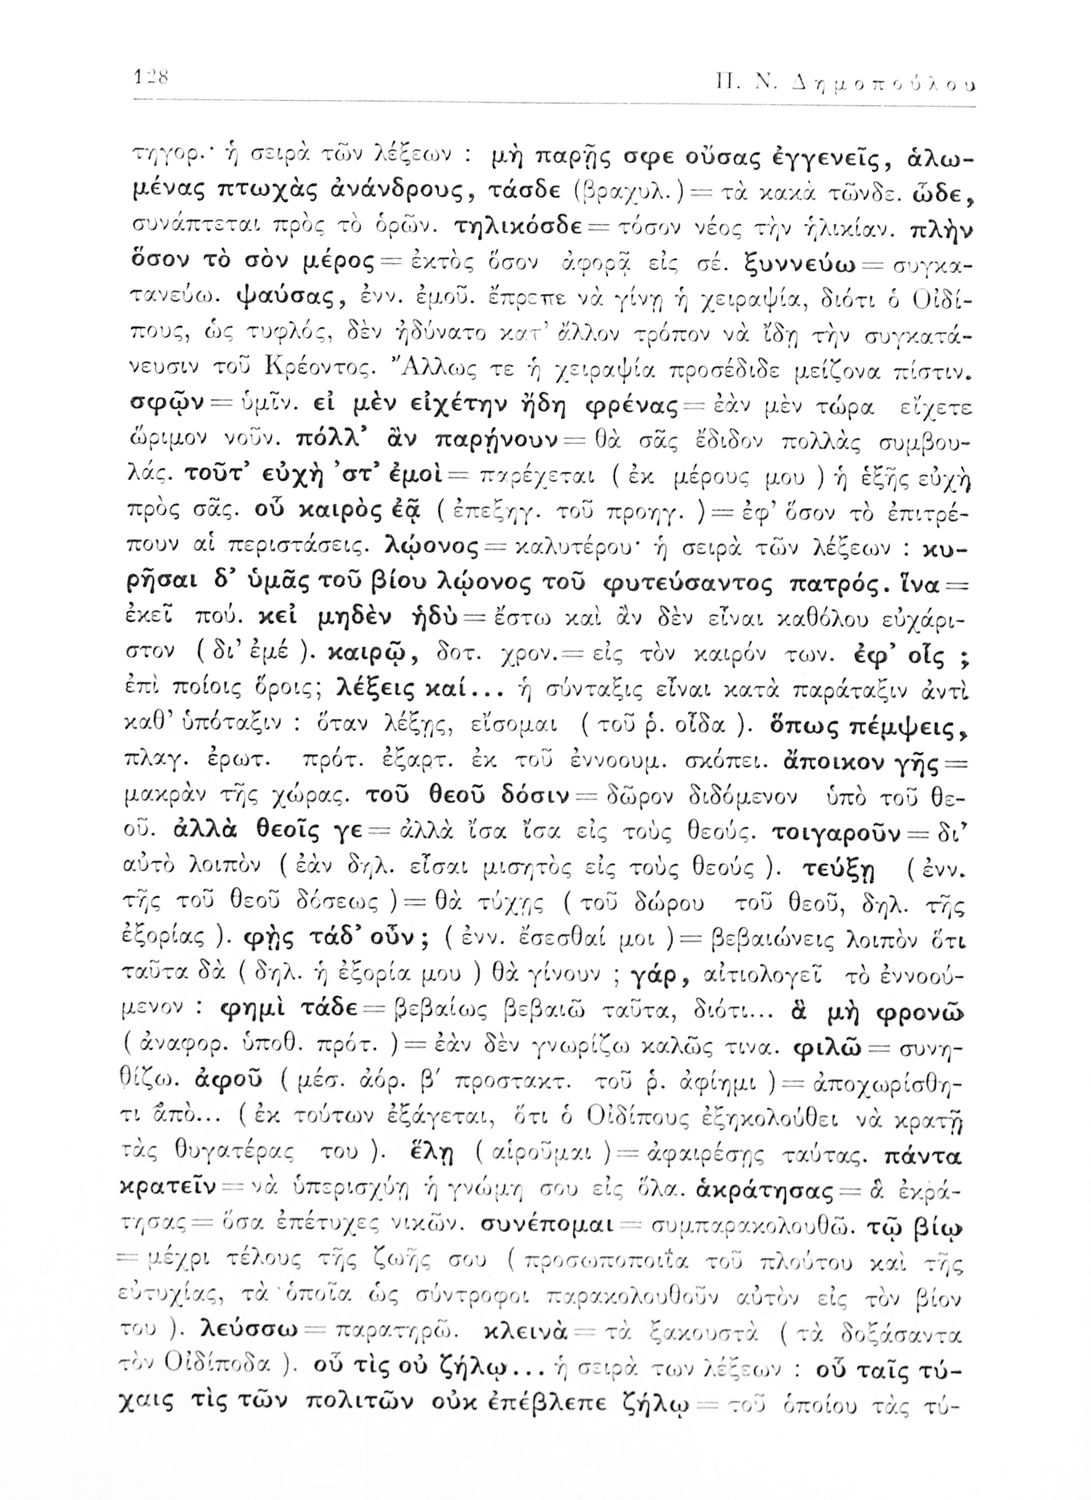 128 Π. Ν. Δημοπούλου
τηγορ.· ἡ σειρὰ τῶν λέξεων : μὴ παρῇς σφε οὔσας ἐγγενεῖς, ἀλω-
μένας πτωχὰς ἀνάνδρους, τάσδε (βραχυλ.) = τὰ κακὰ τῶνδε. ὧδε,
συνάπτεται πρὸς τὸ ὁρῶν. τηλικόσδε = τόσον νέος τὴν ἡλικίαν. πλὴν
ὅσον τὸ σὸν μέρος = ἐκτὸς ὅσον ἀφορᾷ εἰς σέ. ξυννεύω = συγκα-
τανεύω. ψαύσας, ἐνν. ἐμοῦ. ἔπρεπε νὰ γίνῃ ἡ χειραψία, διότι ὁ Οἰδί-
πους, ὡς τυφλός, δὲν ἠδύνατο κατ' ἄλλον τρόπον νὰ ἴδῃ τὴν συγκατά-
νευσιν τοῦ Κρέοντος. Ἄλλως τε ἡ χειραψία προσέδιδε μείζονα πίστιν.
σφῷν = ὑμῖν. εἰ μὲν εἰχέτην ἤδη φρένας = ἐὰν μὲν τώρα εἴχετε
ὥριμον νοῦν. πόλλ' ἂν παρῄνουν = θὰ σᾶς ἔδιδον πολλὰς συμβου-
λάς. τοῦτ' εὐχὴ 'στ' ἐμοὶ = παρέχεται ( ἐκ μέρους μου ) ἡ ἑξῆς εὐχὴ
πρὸς σᾶς. οὗ καιρὸς ἐᾷ ( ἐπεξηγ. τοῦ προηγ. ) = ἐφ' ὅσον τὸ ἐπιτρέ-
πουν αἱ περιστάσεις. λῴονος = καλυτέρου· ἡ σειρὰ τῶν λέξεων : κυ-
ρῆσαι δ' ὑμᾶς τοῦ βίου λῴονος τοῦ φυτεύσαντος πατρός. ἵνα =
ἐκεῖ πού. κεἰ μηδὲν ἡδὺ = ἔστω καὶ ἂν δὲν εἶναι καθόλου εὐχάρι-
στον ( δι' ἐμέ ). καιρῷ, δοτ. χρον. = εἰς τὸν καιρόν των. ἐφ' οἷς ;
ἐπὶ ποίοις ὅροις; λέξεις καί... ἡ σύνταξις εἶναι κατὰ παράταξιν ἀντὶ
καθ' ὑπόταξιν : ὅταν λέξῃς, εἴσομαι ( τοῦ ῥ. οἶδα ). ὅπως πέμψεις,
πλαγ. ἐρωτ. πρότ. ἐξαρτ. ἐκ τοῦ ἐννοουμ. σκόπει. ἄποικον γῆς =
μακρὰν τῆς χώρας. τοῦ θεοῦ δόσιν = δῶρον διδόμενον ὑπὸ τοῦ θε-
οῦ. ἀλλὰ θεοῖς γε = ἀλλὰ ἴσα ἴσα εἰς τοὺς θεούς. τοιγαροῦν = δι'
αὐτὸ λοιπὸν ( ἐὰν δηλ. εἶσαι μισητὸς εἰς τοὺς θεούς ). τεύξῃ ( ἐνν.
τῆς τοῦ θεοῦ δόσεως ) = θὰ τύχῃς ( τοῦ δώρου τοῦ θεοῦ, δηλ. τῆς
ἐξορίας ). φῂς τάδ' οὖν; ( ἐνν. ἔσεσθαί μοι ) = βεβαιώνεις λοιπὸν ὅτι
ταῦτα δὰ ( δηλ. ἡ ἐξορία μου ) θὰ γίνουν ; γάρ, αἰτιολογεῖ τὸ ἐννοού-
μενον : φημὶ τάδε = βεβαίως βεβαιῶ ταῦτα, διότι... ἃ μὴ φρονῶ
( ἀναφορ. ὑποθ. πρότ. ) = ἐὰν δὲν γνωρίζω καλῶς τινα. φιλῶ = συνη-
θίζω. ἀφοῦ ( μέσ. ἀόρ. β' προστακτ. τοῦ ῥ. ἀφίημι ) = ἀποχωρίσθη-
τι ἀπὸ... ( ἐκ τούτων ἐξάγεται, ὅτι ὁ Οἰδίπους ἐξηκολούθει νὰ κρατῇ
τὰς θυγατέρας του ). ἕλῃ ( αἱροῦμαι ) = ἀφαιρέσῃς ταύτας. πάντα
κρατεῖν = νὰ ὑπερισχύῃ ἡ γνώμη σου εἰς ὅλα. ἁκράτησας = ἃ ἐκρά-
τησας = ὅσα ἐπέτυχες νικῶν. συνέπομαι = συμπαρακολουθῶ. τῷ βίῳ
= μέχρι τέλους τῆς ζωῆς σου ( προσωποποιΐα τοῦ πλούτου καὶ τῆς
εὐτυχίας, τὰ ὁποῖα ὡς σύντροφοι παρακολουθοῦν αὐτὸν εἰς τὸν βίον
του ). λεύσσω = παρατηρῶ. κλεινὰ = τὰ ξακουστὰ ( τὰ δοξάσαντα
τὸν Οἰδίποδα ). οὗ τὶς οὐ ζήλῳ... ἡ σειρὰ των λέξεων : οὗ ταῖς τύ-
χαις τὶς τῶν πολιτῶν οὐκ ἐπέβλεπε ζήλῳ = τοῦ ὁποίου τὰς τύ-